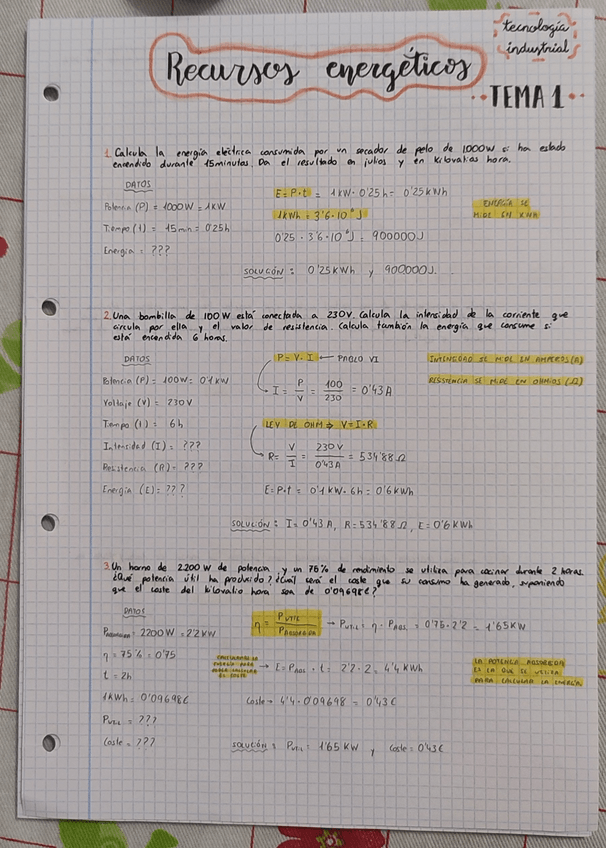 tecnología
industrial
Recursos energéticos
·· TEMA 1 ··
1. Calcula la energía eléctrica consumida por un secador de pelo de 1000W si ha estado
encendido durante 15 minutos. Da el resultado en julios y en kilovatios hora.
DATOS
Potencia (P) = 1000W = 1KW
Tiempo (t) = 15min = 0'25h
Energía = ???
E = P·t = 1KW · 0'25h = 0'25KWh
1KWh = 3'6·10⁶J
0'25 · 3'6·10⁶J = 900000J
ENERGÍA SE
MIDE EN KWh
SOLUCIÓN : 0'25KWh y 900000J.
2. Una bombilla de 100W está conectada a 230V. Calcula la intensidad de la corriente que
circula por ella y el valor de resistencia. Calcula también la energía que consume si
está encendida 6 horas.
DATOS
Potencia (P) = 100W = 0'1KW
Voltaje (V) = 230V
Tiempo (t) = 6h
Intensidad (I) = ???
Resistencia (R) = ???
Energía (E) = ???
P = V·I ← PABLO VI
I = P/V = 100/230 = 0'43A
LEY DE OHM ⇒ V = I·R
R = V/I = 230V/0'43A = 534'88Ω
E = P·t = 0'1KW · 6h = 0'6KWh
INTENSIDAD SE MIDE EN AMPERIOS (A)
RESISTENCIA SE MIDE EN OHMIOS (Ω)
SOLUCIÓN : I = 0'43A, R = 534'88Ω, E = 0'6KWh
3. Un horno de 2200W de potencia y un 75% de rendimiento se utiliza para cocinar durante 2 horas.
¿Qué potencia útil ha producido? ¿Cuál será el coste que su consumo ha generado, suponiendo
que el coste del kilovatio hora son de 0'09698€?
DATOS
= 2200W = 2'2KW
η = 75% = 0'75
t = 2h
1KWh = 0'09698€
Pútil = ???
Coste = ???
η = PÚTIL/PABSORBIDA → PÚTIL = η · PABS = 0'75 · 2'2 = 1'65KW
ENERGÍA PARA
→ E = PABS · t = 2'2 · 2 = 4'4KWh
Coste → 4'4 · 0'09698 = 0'43€
LA POTENCIA ABSORBIDA
ES LA QUE SE UTILIZA
PARA CALCULAR LA ENERGÍA.
SOLUCIÓN : PÚTIL = 1'65KW y Coste = 0'43€